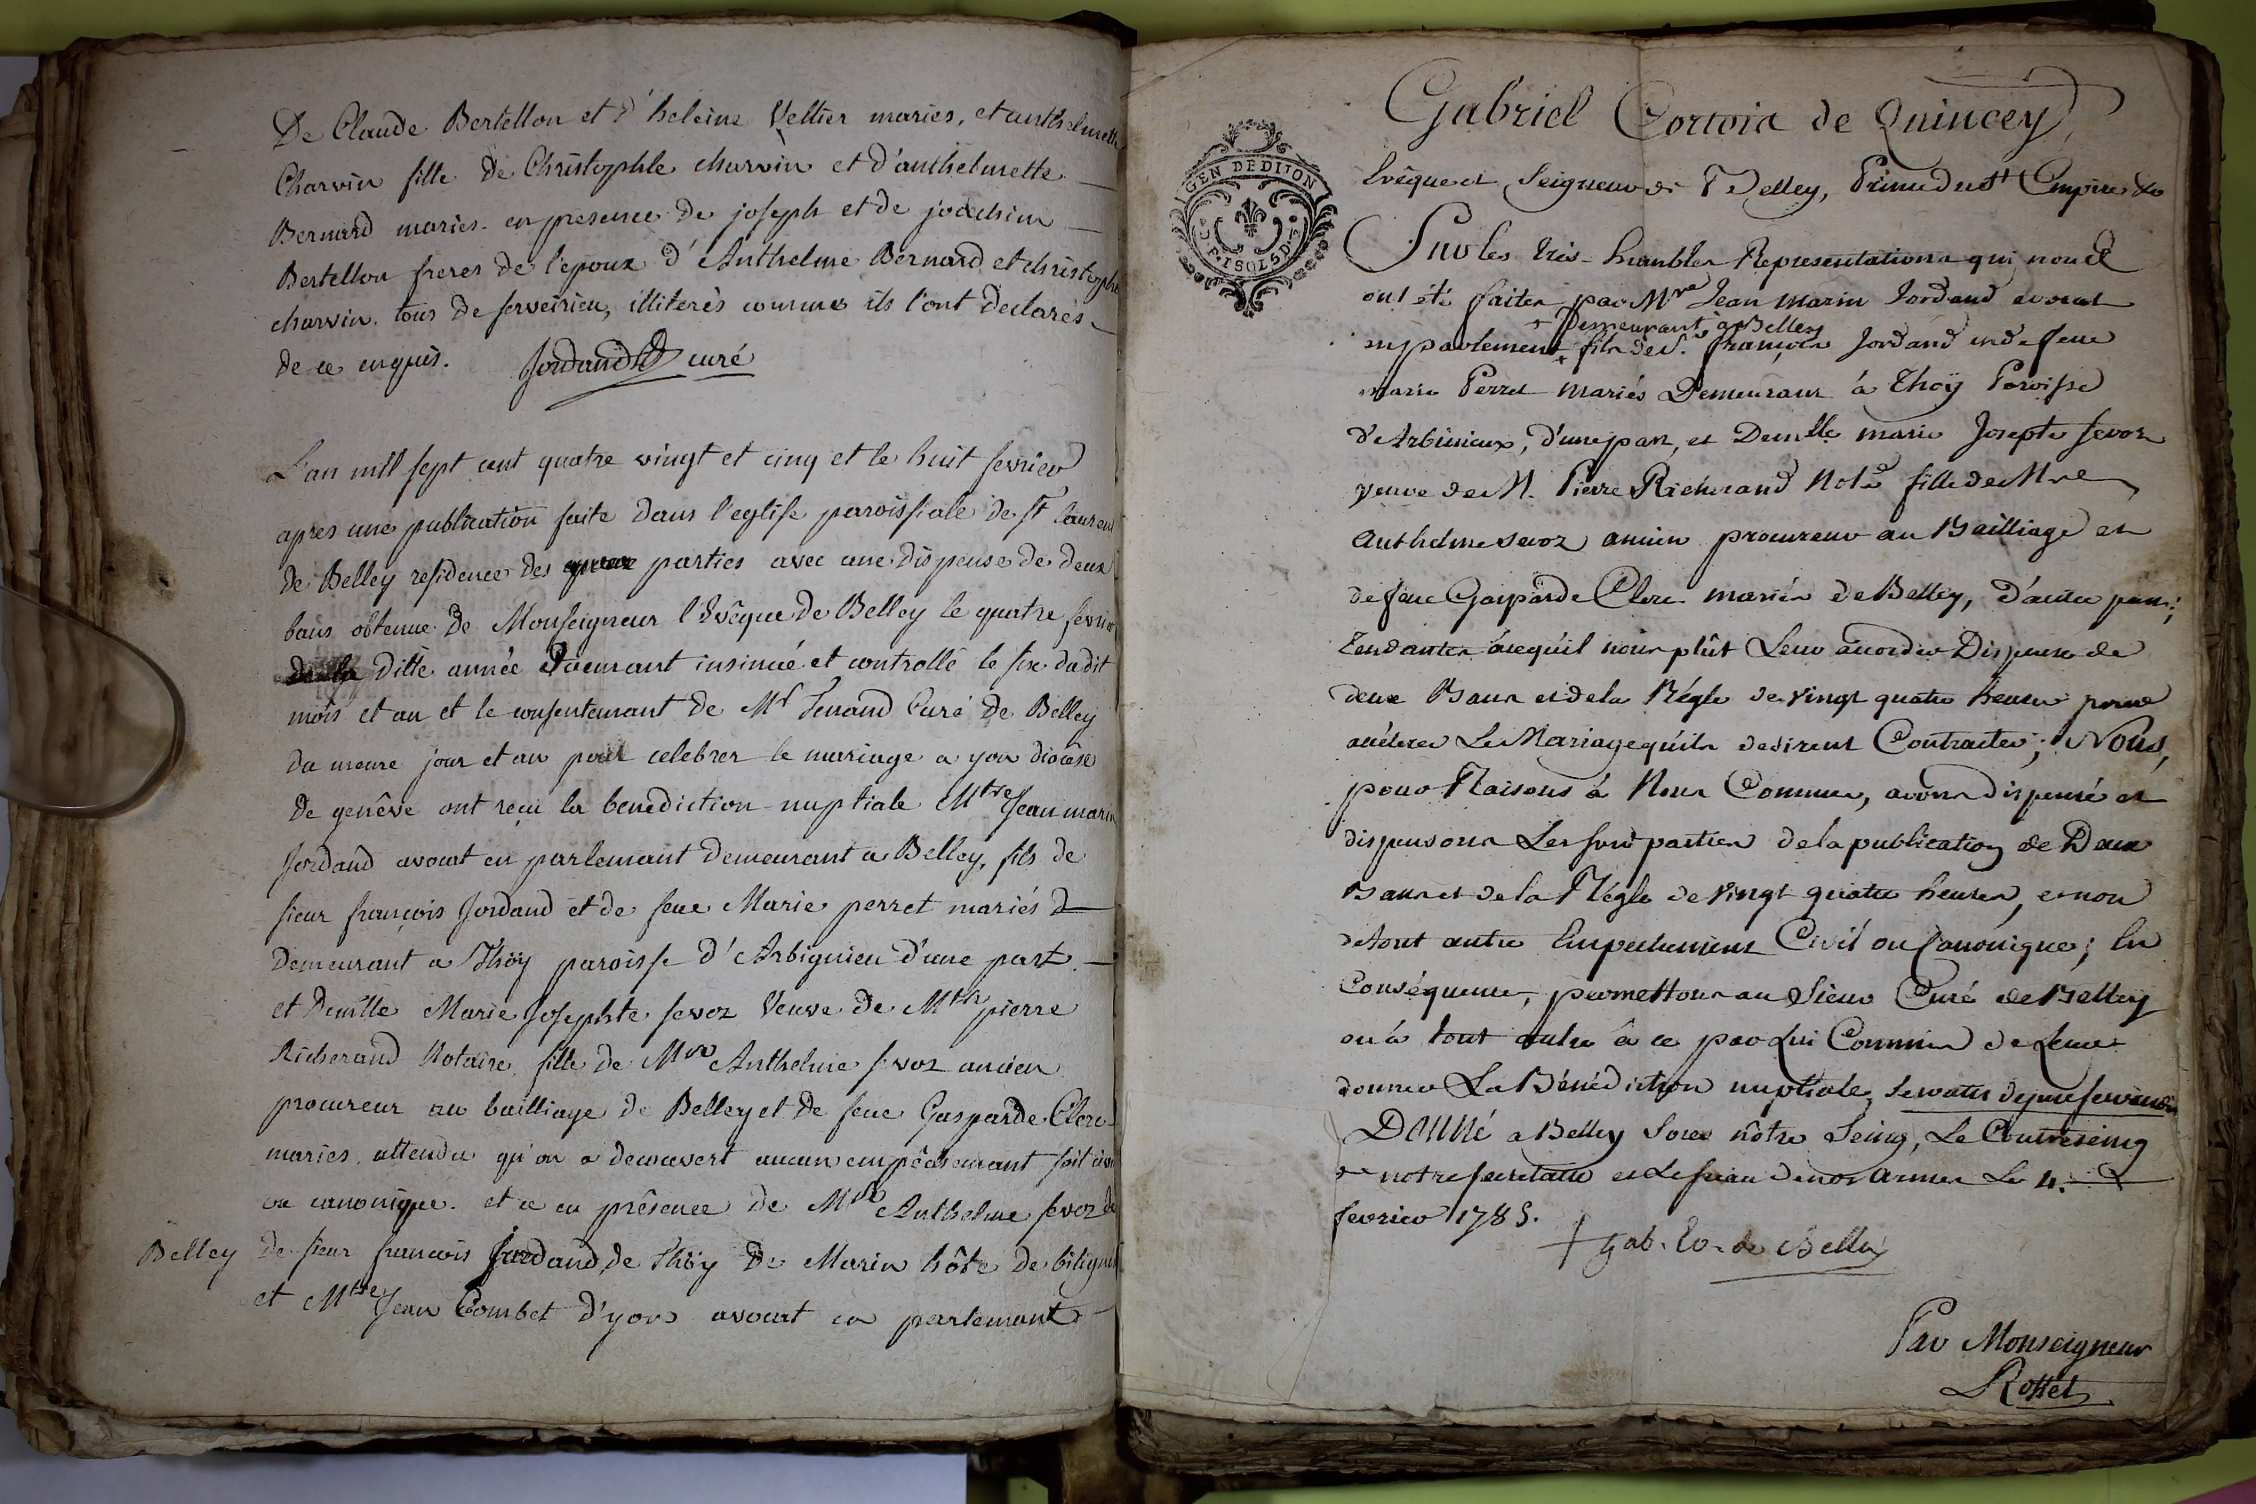 De Claude Bertellon et d'heleine Veltier mariés, et anthelmette
Charvin fille de Christophle charvin et d'anthelmette
Bernard mariés. en presence de joseph et de joachim
Bertellon freres de l'epoux d'Anthelme Bernard et christophe
charvin. tous de serveirieu, illiterés comme ils l'ont declarés
de ce enquis. Jordand curé
L'an mil sept cent quatre vingt et cinq et le huit fevrier
apres une publication faite dans l'eglise paroissiale de St Laurent
de Belley residence des parties avec une dispense de deux
bans obtenue de Monseigneur l'Evêque de Belley le quatre fevrier
de la ditte année Courant insinué et controllé le six dudit
mois et an et le consentemant de Mr Curé de Belley
du meme jour et an pour celebrer le mariage a yon diocèse
de genêve ont reçu la benediction nuptiale Mtre Jean marin
Jordand avocat en parlemant demeurant a Belley, fils de
sieur françois Jordand et de feue Marie perret mariés
Demeurant a Thöy paroisse d'Arbignieu d'une part
et Demlle Marie Josephte sevoz Veuve de Mtre pierre
Richerand Notaire fille de Mre Anthelme sevoz ancien
procureur au bailliage de Belley et de feue Gasparde Clerc
mariés. attendu qu'on a decouvert aucun empêchemant soit civil
ou canonique. et ce en présence de Mre Anthelme sevoz de
Belley de sieur francois Jordand de Thöy de Marin hôte de
et Mtre Jean Combet d'yon avocat en parlemant
Gabriel Cortois de Quincey,
Evêque et Seigneur de Belley, Prince du St Empire &c
Sur les très-humbles Representations qui nous
ont été faites par Mre Jean marin Jordand avocat
+ Demeurant à Belley
en parlement + fils de S. François Jordand et de feue
marie Perret mariés Demeurant à Thoÿ Paroisse
d'Arbinieux, d'une part, et Demlle marie Josepte sevoz
veuve de M. Pierre Richerand Nore fille de Mre
Anthelme sevoz ancien procureur au Bailliage et
de feue Gasparde Clerc mariés de Belley, d'autre part;
Tendantes à ce qu'il nous plût Leur accorder Dispense de
deux Bans et de la Régle de vingt quatre heures pour
accélerer Le Mariage qu'ils desirent Contracter; Nous,
pour Raisons à Nous Connues, avons dispensé et
dispensons Les susd parties de la publication de Deux
Bans et de la Régle de vingt quatre heures, et non
de tout autre Empechement Civil ou Canonique; En
Conséquence, permettons au Sieur Curé de Belley
ou à tout autre à ce par Lui Commis de Leur
donner La Bénédiction nuptiale, servatis de jure servandis
Donné a Belley Sous nôtre Seing, Le Contreseing
de notre secretaire et Le sceau de nos armes Le 4.
fevrier 1785.
+ Gab. Ev. de Belley
Par Monseigneur
Rosset
GEN DE DIJON
P. I SOL 5 D